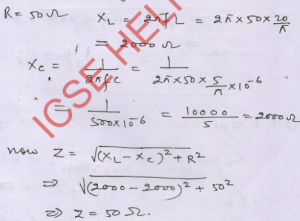 R = 50Ω   X_L = 2πfL = 2π×50×20/π
= 2000 Ω
X_C = 1/2πfC = 1/2π×50×5/π×10^-6
= 1/500×10^-6 = 10000/5 = 2000Ω
now Z = √(X_L - X_C)^2 + R^2
⇒ √(2000 - 2000)^2 + 50^2
⇒ Z = 50 Ω.
ICSE HEL